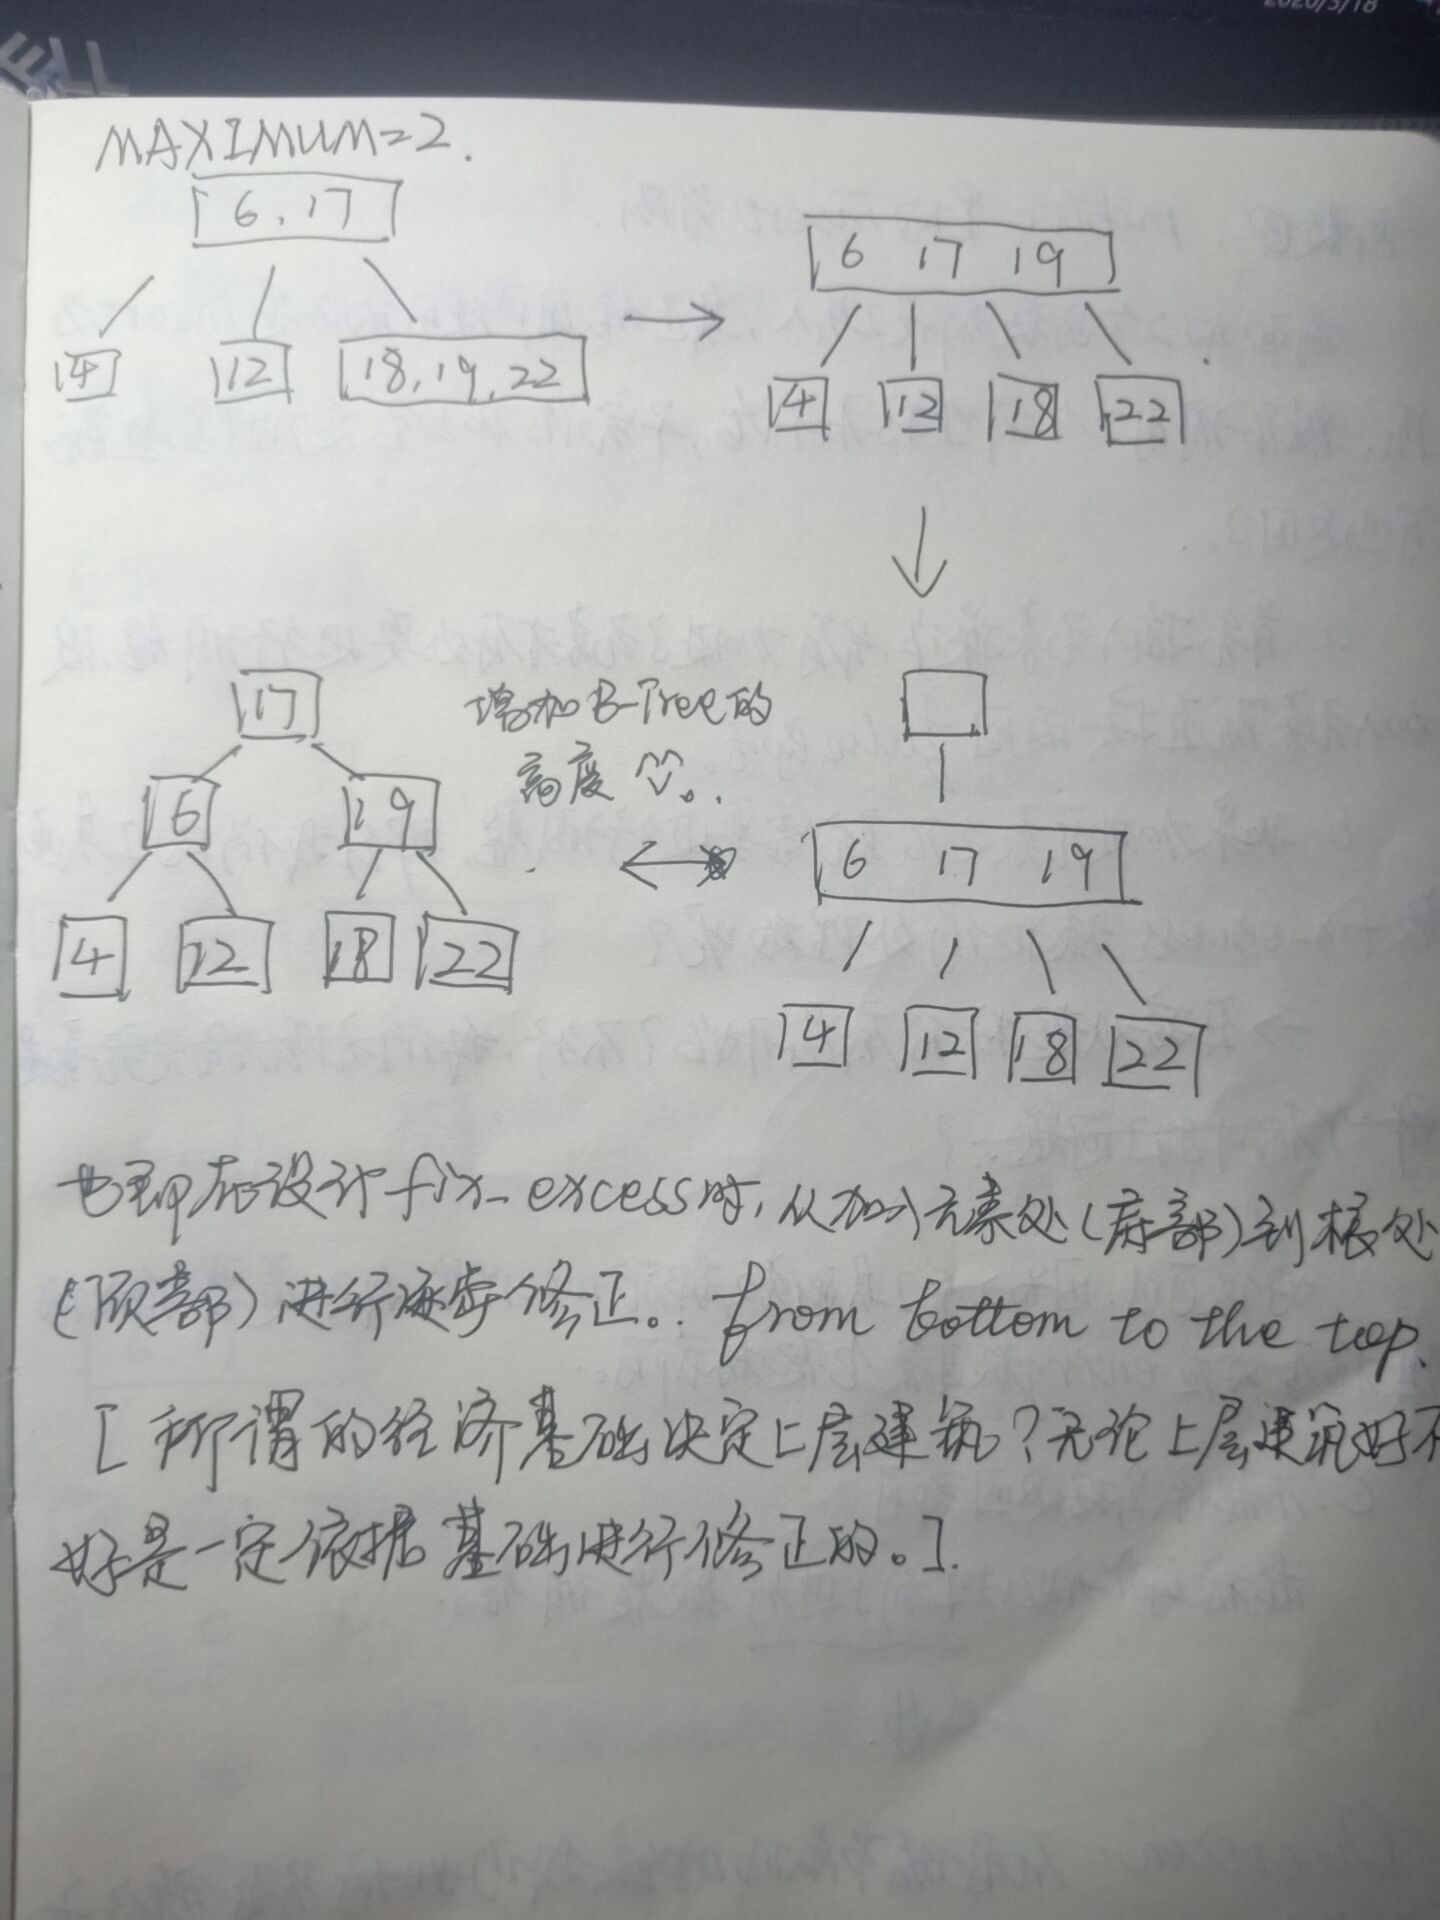 2020/3/18
ELL
MAXIMUM=2.
6, 17
4 12 18,19,22
6 17 19
4 12 18 22
17
6 19
4 12 18 22
增加B-Tree的
高度
6 17 19
4 12 18 22
也即在设计fix_excess时,从加入元素处(底部)到根处
(顶部)进行逐步修正。. from bottom to the top.
[所谓的经济基础决定上层建筑?无论上层建筑好不
好是一定依据基础进行修正的。].